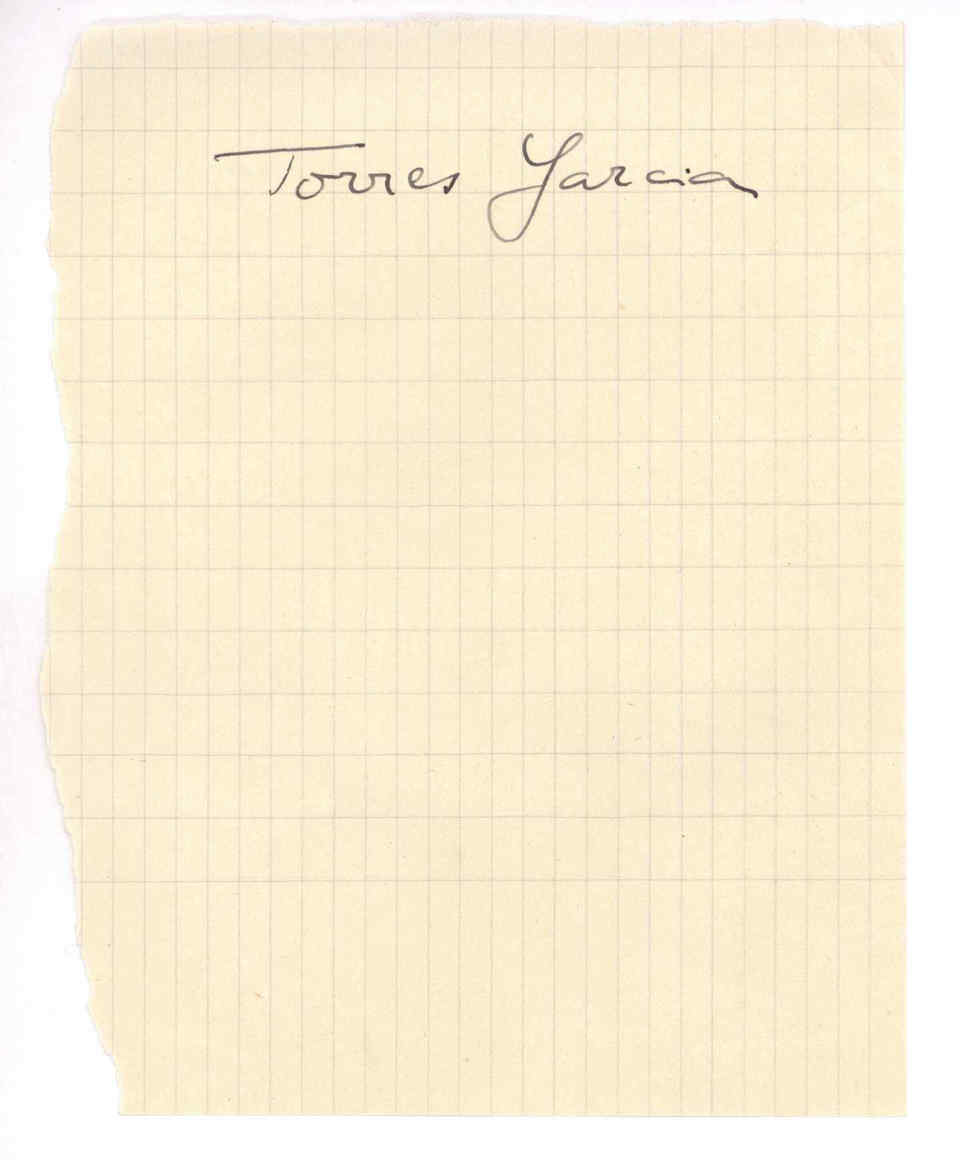 Torres Garcia